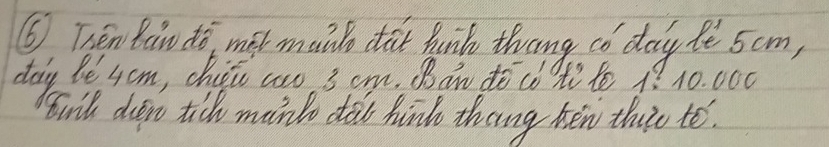 ⑥ Trên bản đồ, một mảnh đất hình thang có đáy bé 5cm,
đáy bé 4cm, chiều cao 3 cm. Bản đồ có tỉ lệ 1: 10.000
Tính diện tích mảnh đất hình thang trên thực tế.